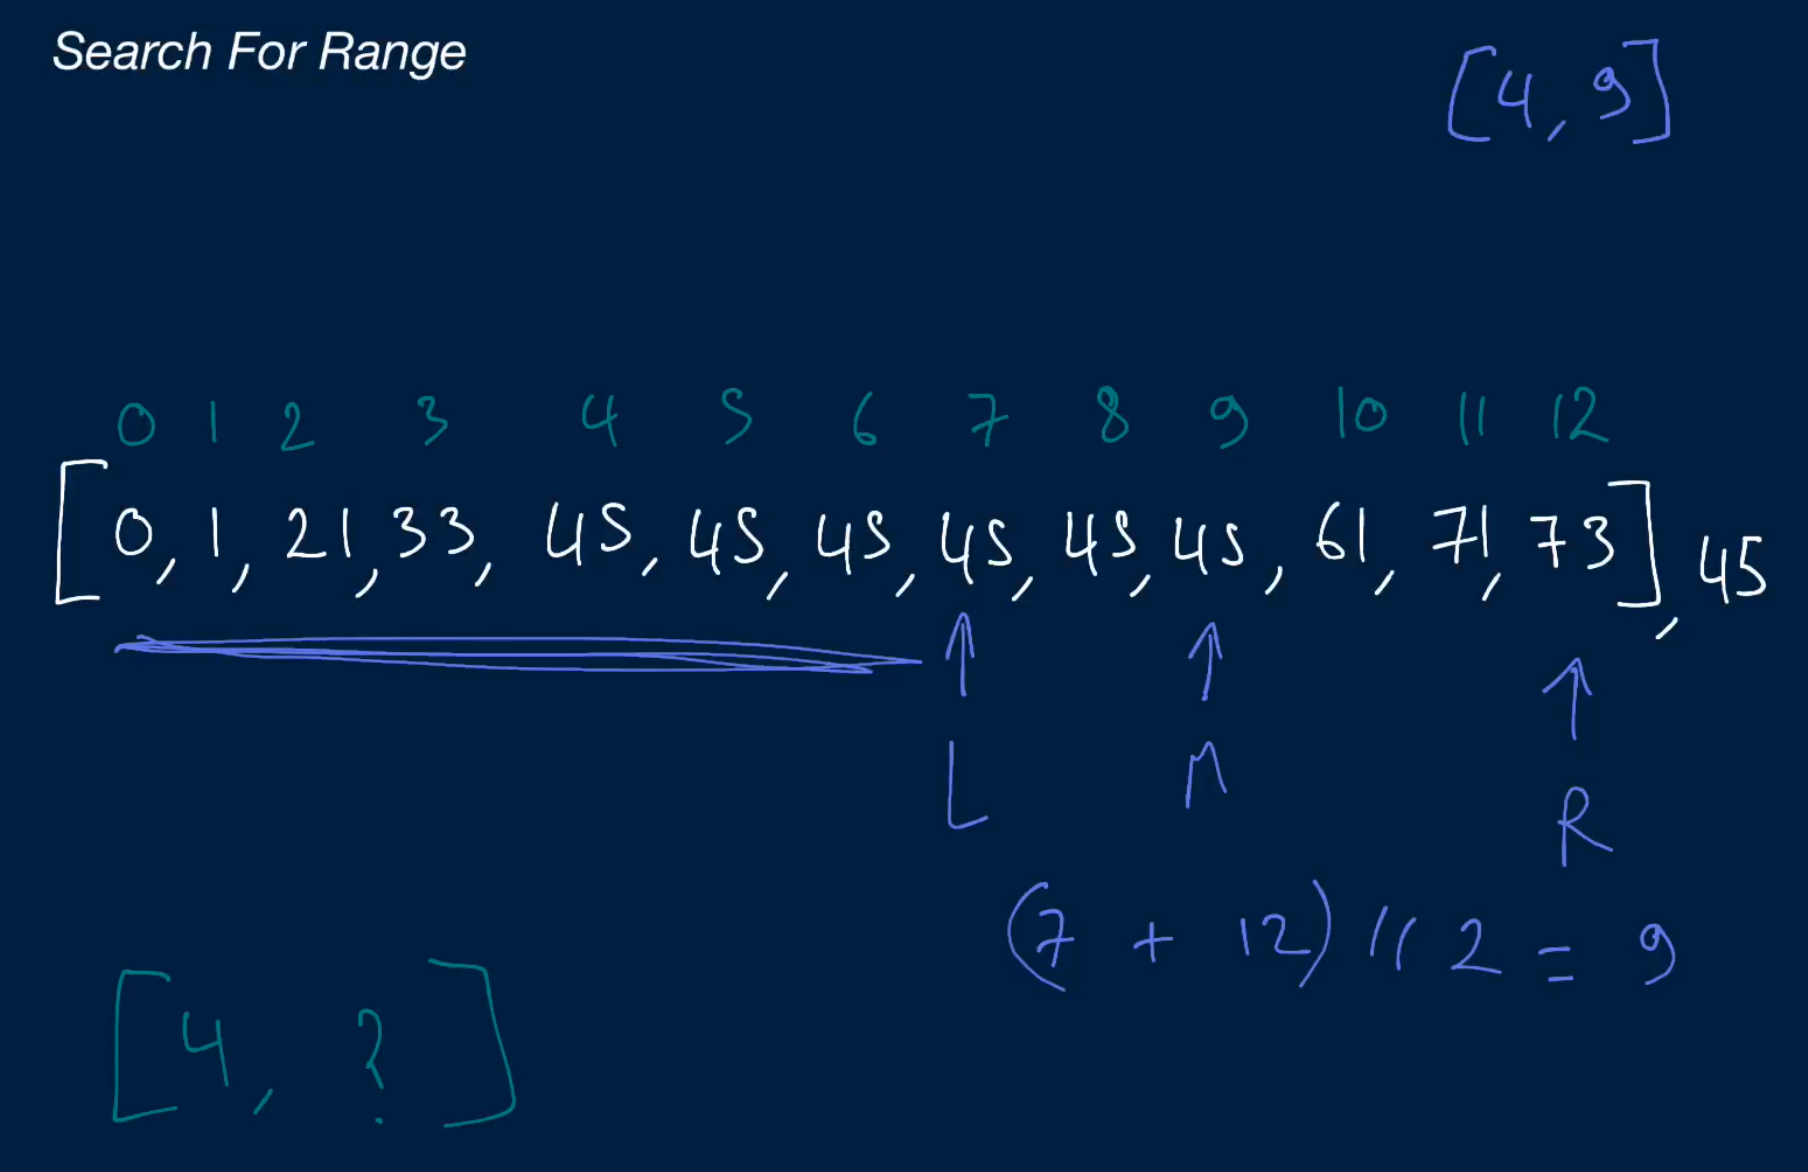 Search For Range
[4, 9]
0 1 2 3 4 5 6 7 8 9 10 11 12
[0, 1, 21, 33, 45, 45, 45, 45, 45, 45, 61, 71, 73], 45
L M R
(7 + 12) // 2 = 9
[4, ?]